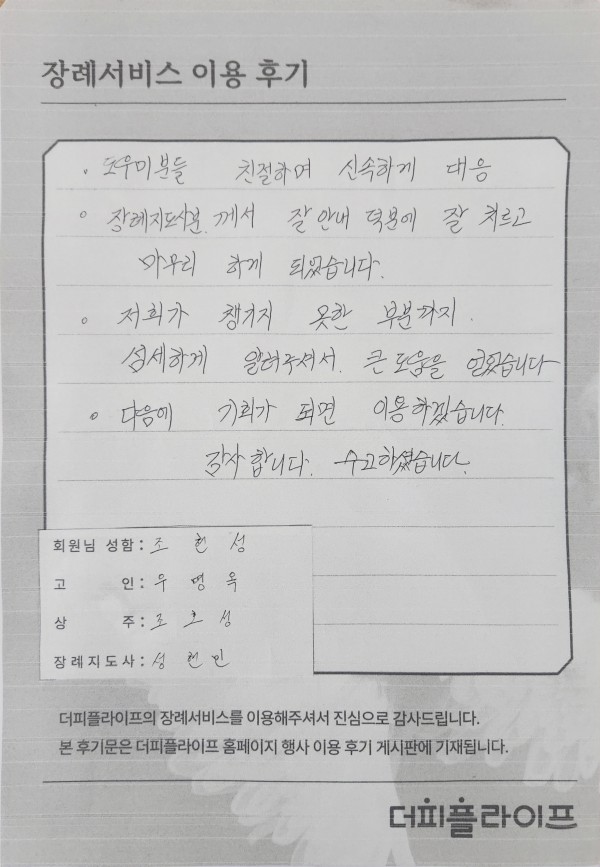 장례서비스 이용 후기
. 도우미분들 친절하며 신속하게 대응
◦ 장례지도사분께서 잘 안내 덕분에 잘 치르고
마무리 하게 되었습니다.
◦ 저희가 챙기지 못한 부분까지.
섬세하게 알려주셔서. 큰 도움을 얻었습니다
◦ 다음에 기회가 되면 이용하겠습니다.
감사합니다. 수고하셨습니다.
회원님 성함 : 조 헌 성
고 인 : 우 명 옥
상 주 : 조 호 성
장례지도사 : 성 현 인
더피플라이프의 장례서비스를 이용해주셔서 진심으로 감사드립니다.
본 후기문은 더피플라이프 홈페이지 행사 이용 후기 게시판에 기재됩니다.
더피플라이프